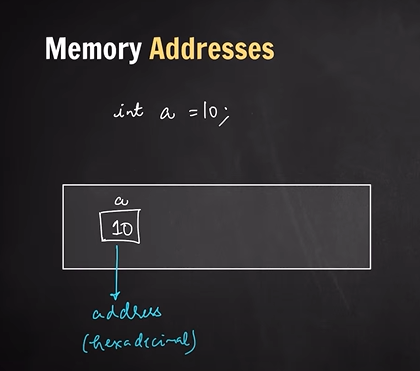 Memory Addresses
int a = 10;
a
10
address
(hexadecimal)